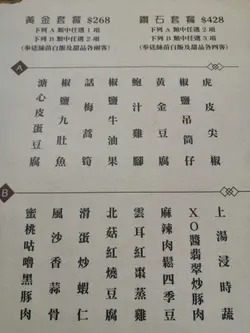 黃金套餐 $268
下列 A 類中任選 1 項
下列 B 類中任選 2 項
(奉送絲苗白飯及甜品各兩客)
鑽石套餐 $428
下列 A 類中任選 2 項
下列 B 類中任選 3 項
(奉送絲苗白飯及甜品各四客)
A
虎皮尖椒
椒鹽吊筒仔
鮑汁雞腳
椒鹽牛油果
話梅萵筍
椒鹽九肚魚
溏心皮蛋豆腐
B
上湯浸時蔬
XO醬翡翠炒豚肉
麻辣肉鬆四季豆
雲耳紅棗蒸雞
北菇紅燒豆腐
滑蛋炒蝦仁
風沙香蒜骨
蜜桃咕嚕黑豚肉